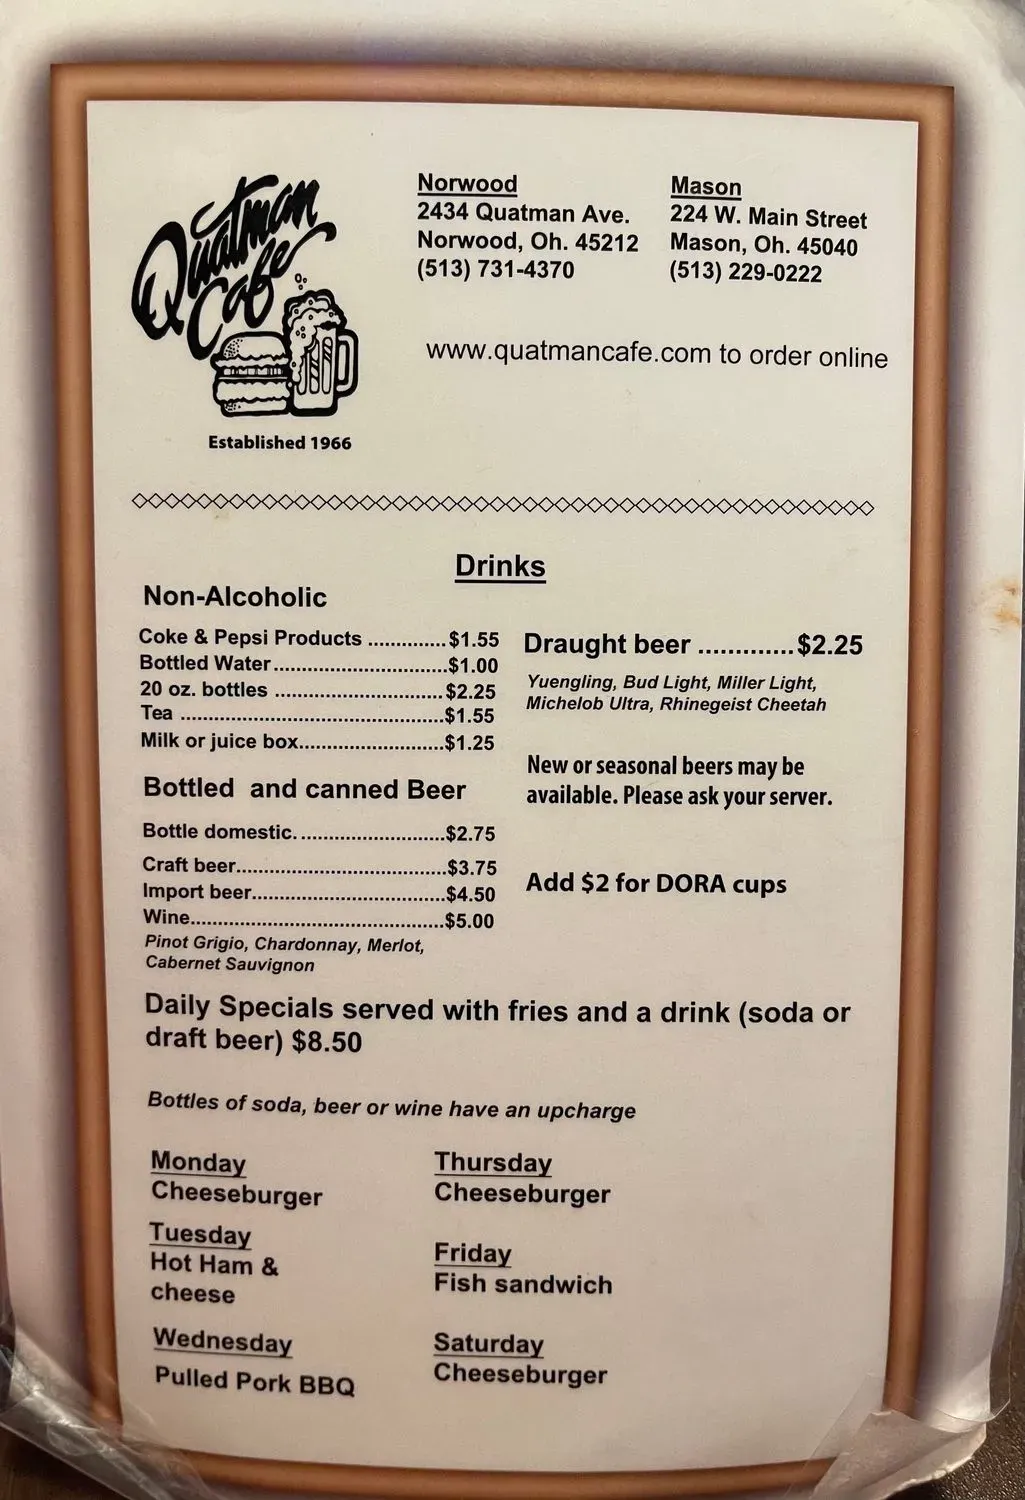 Quatman
Cafe
Established 1966
Norwood
2434 Quatman Ave.
Norwood, Oh. 45212
(513) 731-4370
Mason
224 W. Main Street
Mason, Oh. 45040
(513) 229-0222
www.quatmancafe.com to order online
Drinks
Non-Alcoholic
Coke & Pepsi Products .............$1.55
Bottled Water..............................$1.00
20 oz. bottles .............................$2.25
Tea ..............................................$1.55
Milk or juice box.........................$1.25
Bottled and canned Beer
Bottle domestic. .........................$2.75
Craft beer....................................$3.75
Import beer.................................$4.50
Wine............................................$5.00
Pinot Grigio, Chardonnay, Merlot,
Cabernet Sauvignon
Draught beer .............$2.25
Yuengling, Bud Light, Miller Light,
Michelob Ultra, Rhinegeist Cheetah
New or seasonal beers may be
available. Please ask your server.
Add $2 for DORA cups
Daily Specials served with fries and a drink (soda or
draft beer) $8.50
Bottles of soda, beer or wine have an upcharge
Monday
Cheeseburger
Tuesday
Hot Ham &
cheese
Wednesday
Pulled Pork BBQ
Thursday
Cheeseburger
Friday
Fish sandwich
Saturday
Cheeseburger